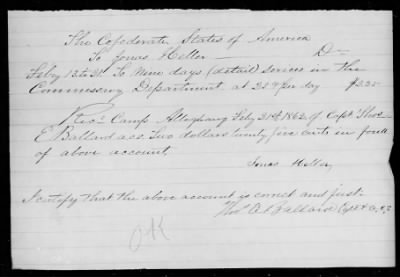 The Cofederate States of America
To Jonas Heller Dr
Feby 13 to 21 To Nine days (detail) service in the
Commissary Department at 25¢ per day $2.25
Recd Camp Alleghany Feby 21st 1862 of Capt Thos
E Ballard acs. Two dollars twenty five cents in full
of above account.
Jonas Heller
I certify that the above account is correct and just
Thos Ballard Capt & A.C.S
OK